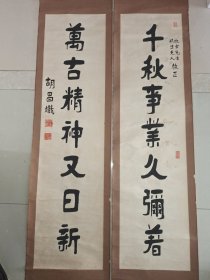 千秋事業久彌著
萬古精神又日新
胡昌熾